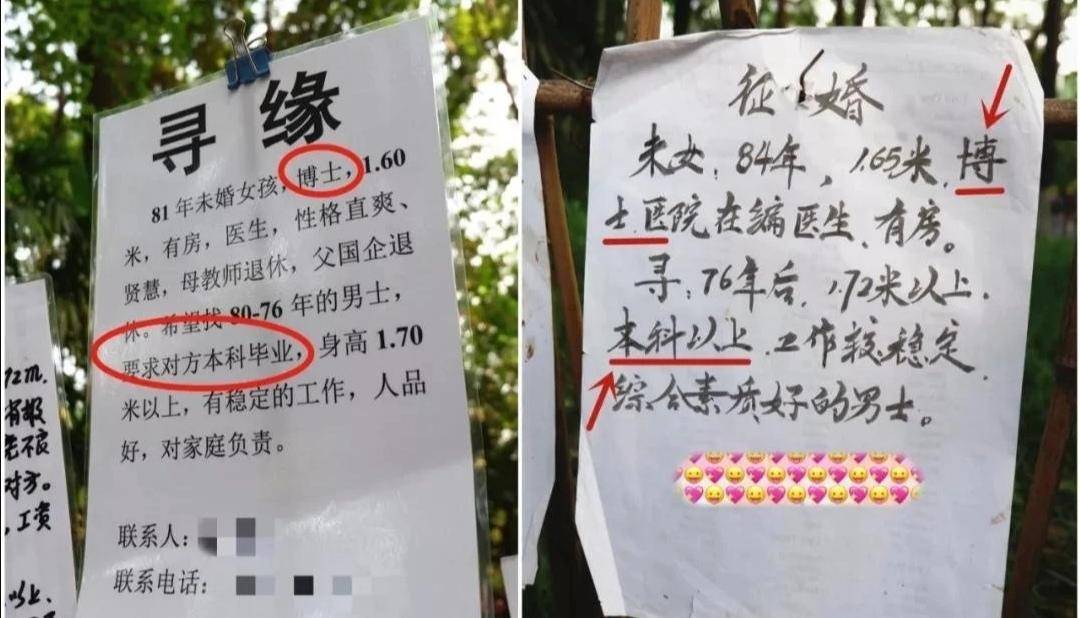 寻缘
81年未婚女孩，博士，1.60
米，有房，医生，性格直爽、
贤慧，母教师退休，父国企退
休。希望找80-76年的男士，
要求对方本科毕业，身高1.70
米以上，有稳定的工作，人品
好，对家庭负责。
联系人：
联系电话：
72m.
对方。
工资
以上.
征婚
未女：84年，1.65米，博
士.医院在编医生、有房。
寻：76年后，1.72米以上.
本科以上.工作较稳定.
综合素质好的男士。